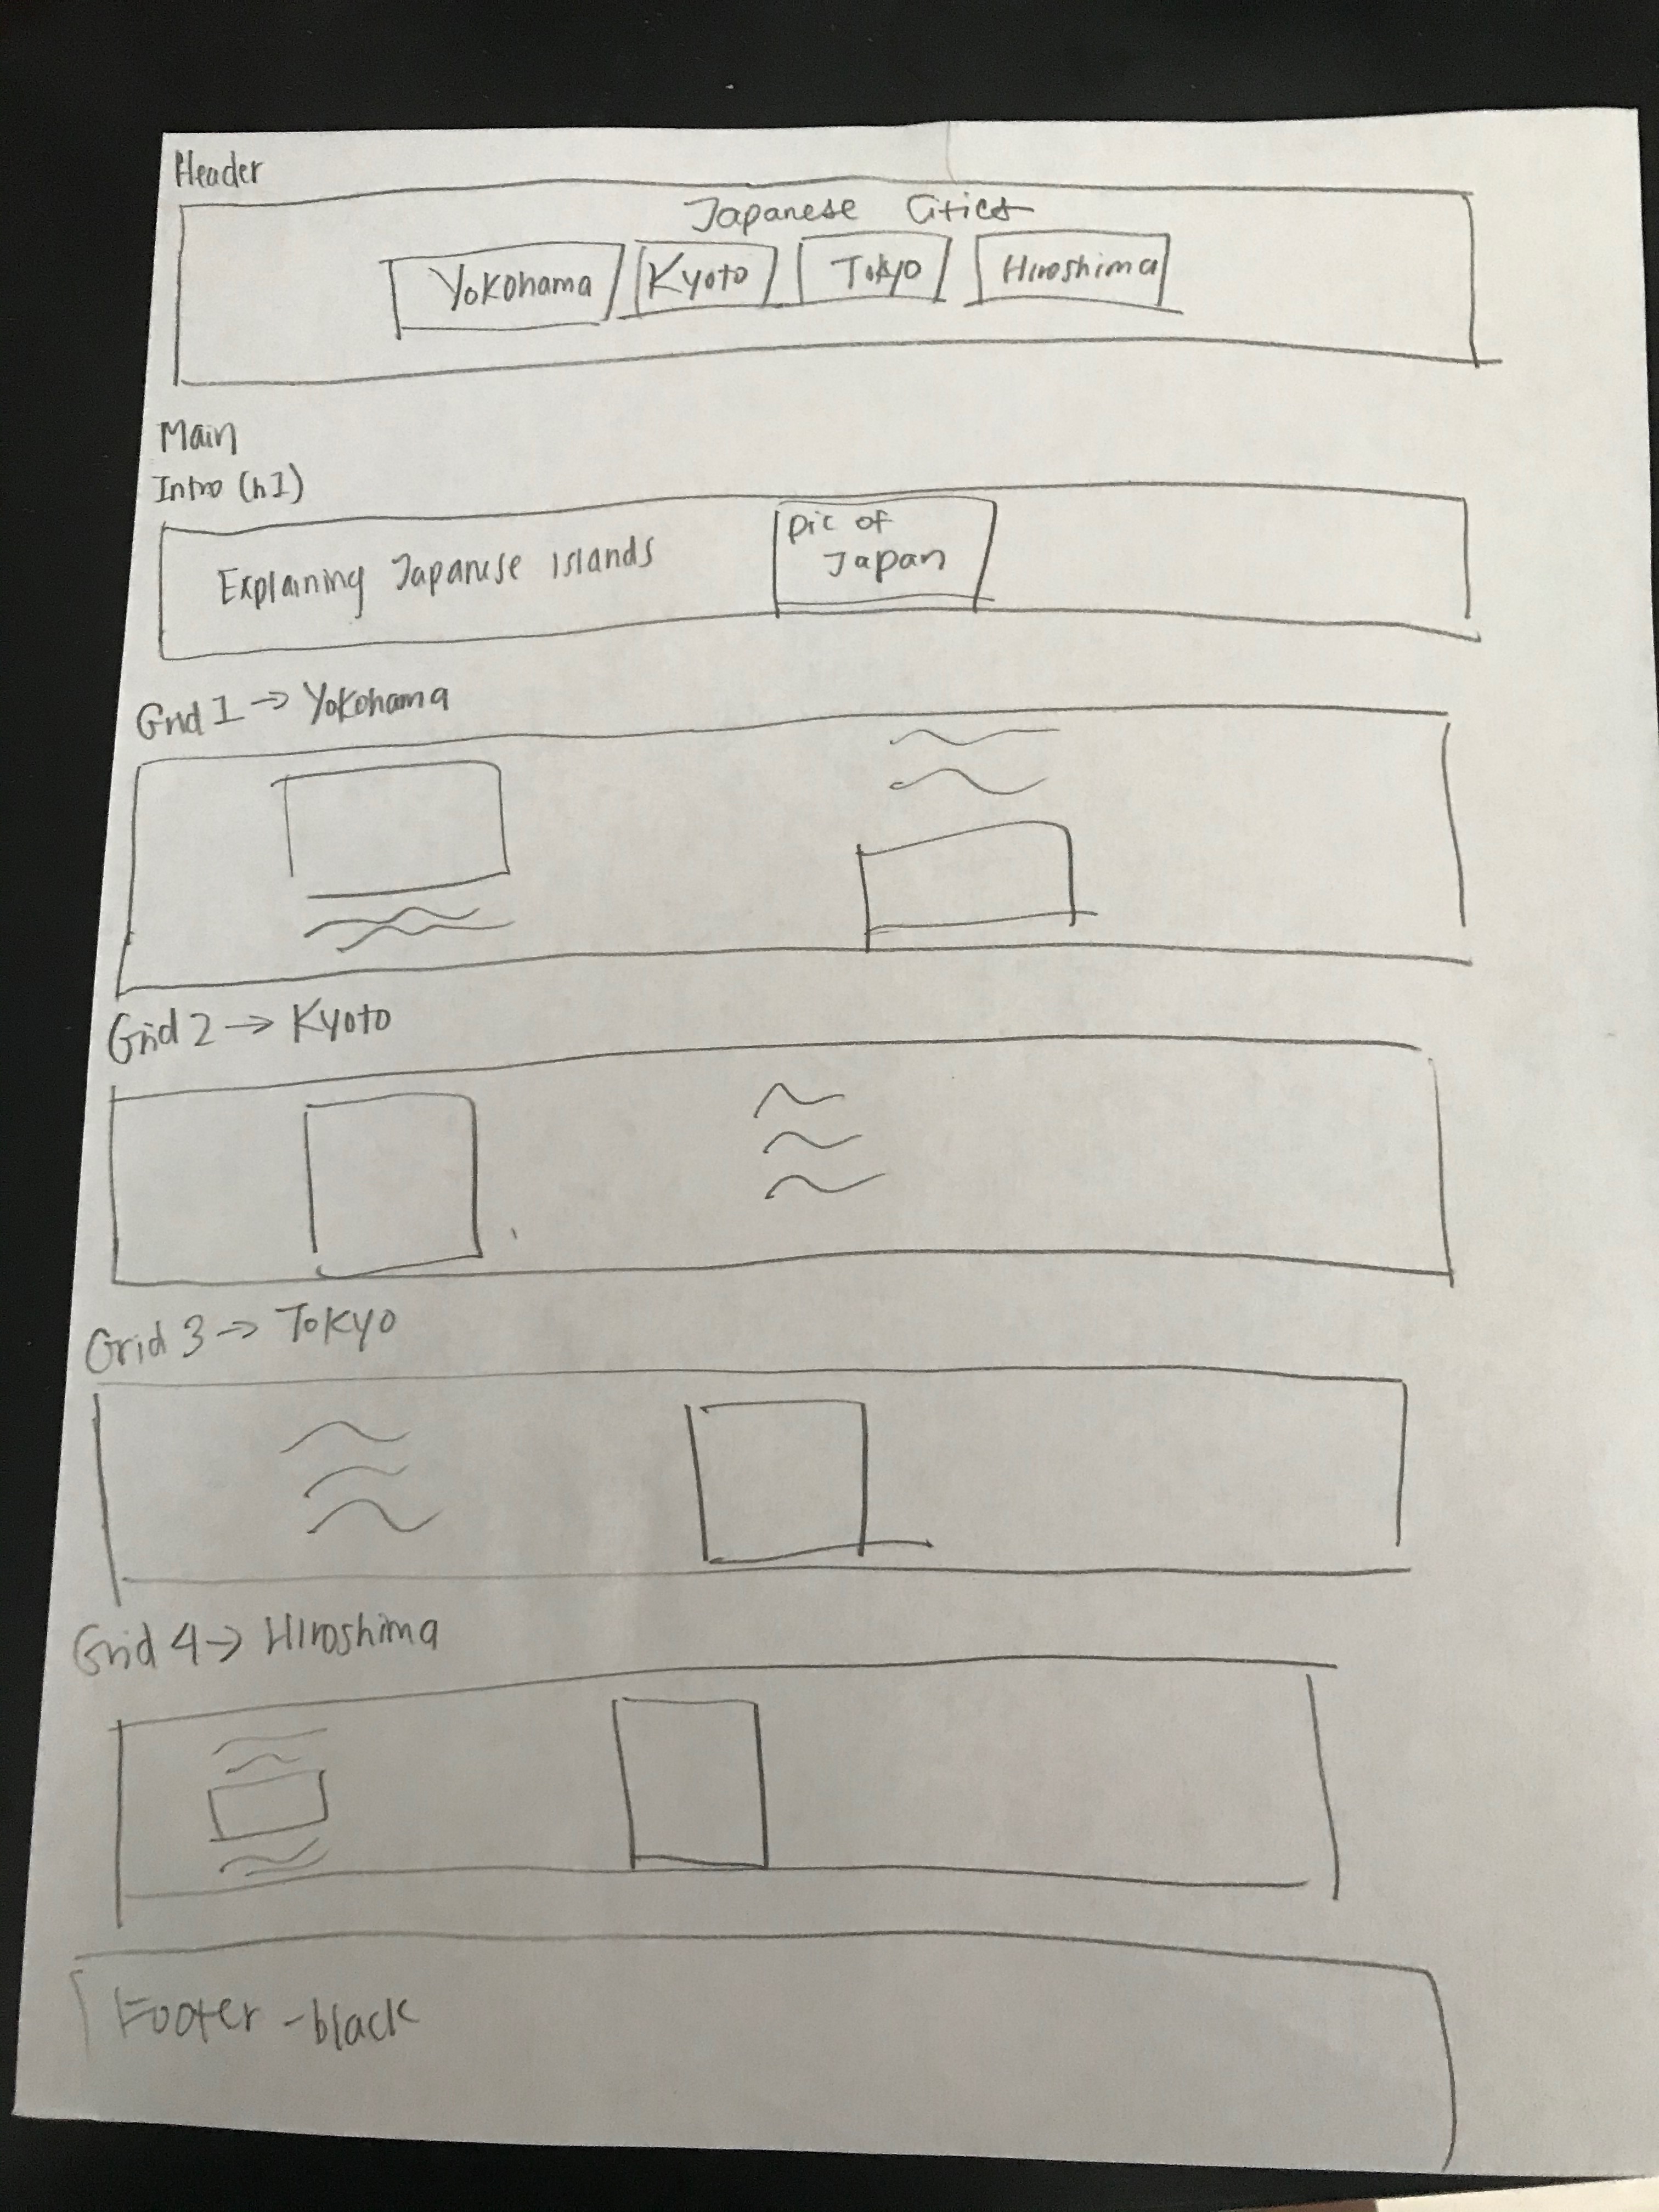 Header
Japanese Cities
Yokohama Kyoto Tokyo Hiroshima
Main
Intro (h1)
Explaining Japanese islands
pic of
Japan
Grid 1 → Yokohama
Grid 2 → Kyoto
Grid 3 → Tokyo
Grid 4 → Hiroshima
Footer - black